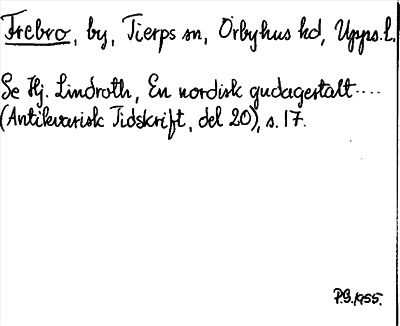 Frebro, by, Tierps sn, Örbyhus hd, Upps.l.
Se Hj. Lindroth, En nordisk gudagestalt....
(Antikvarisk Tidskrift, del 20), s. 17.
P.G. 1955.